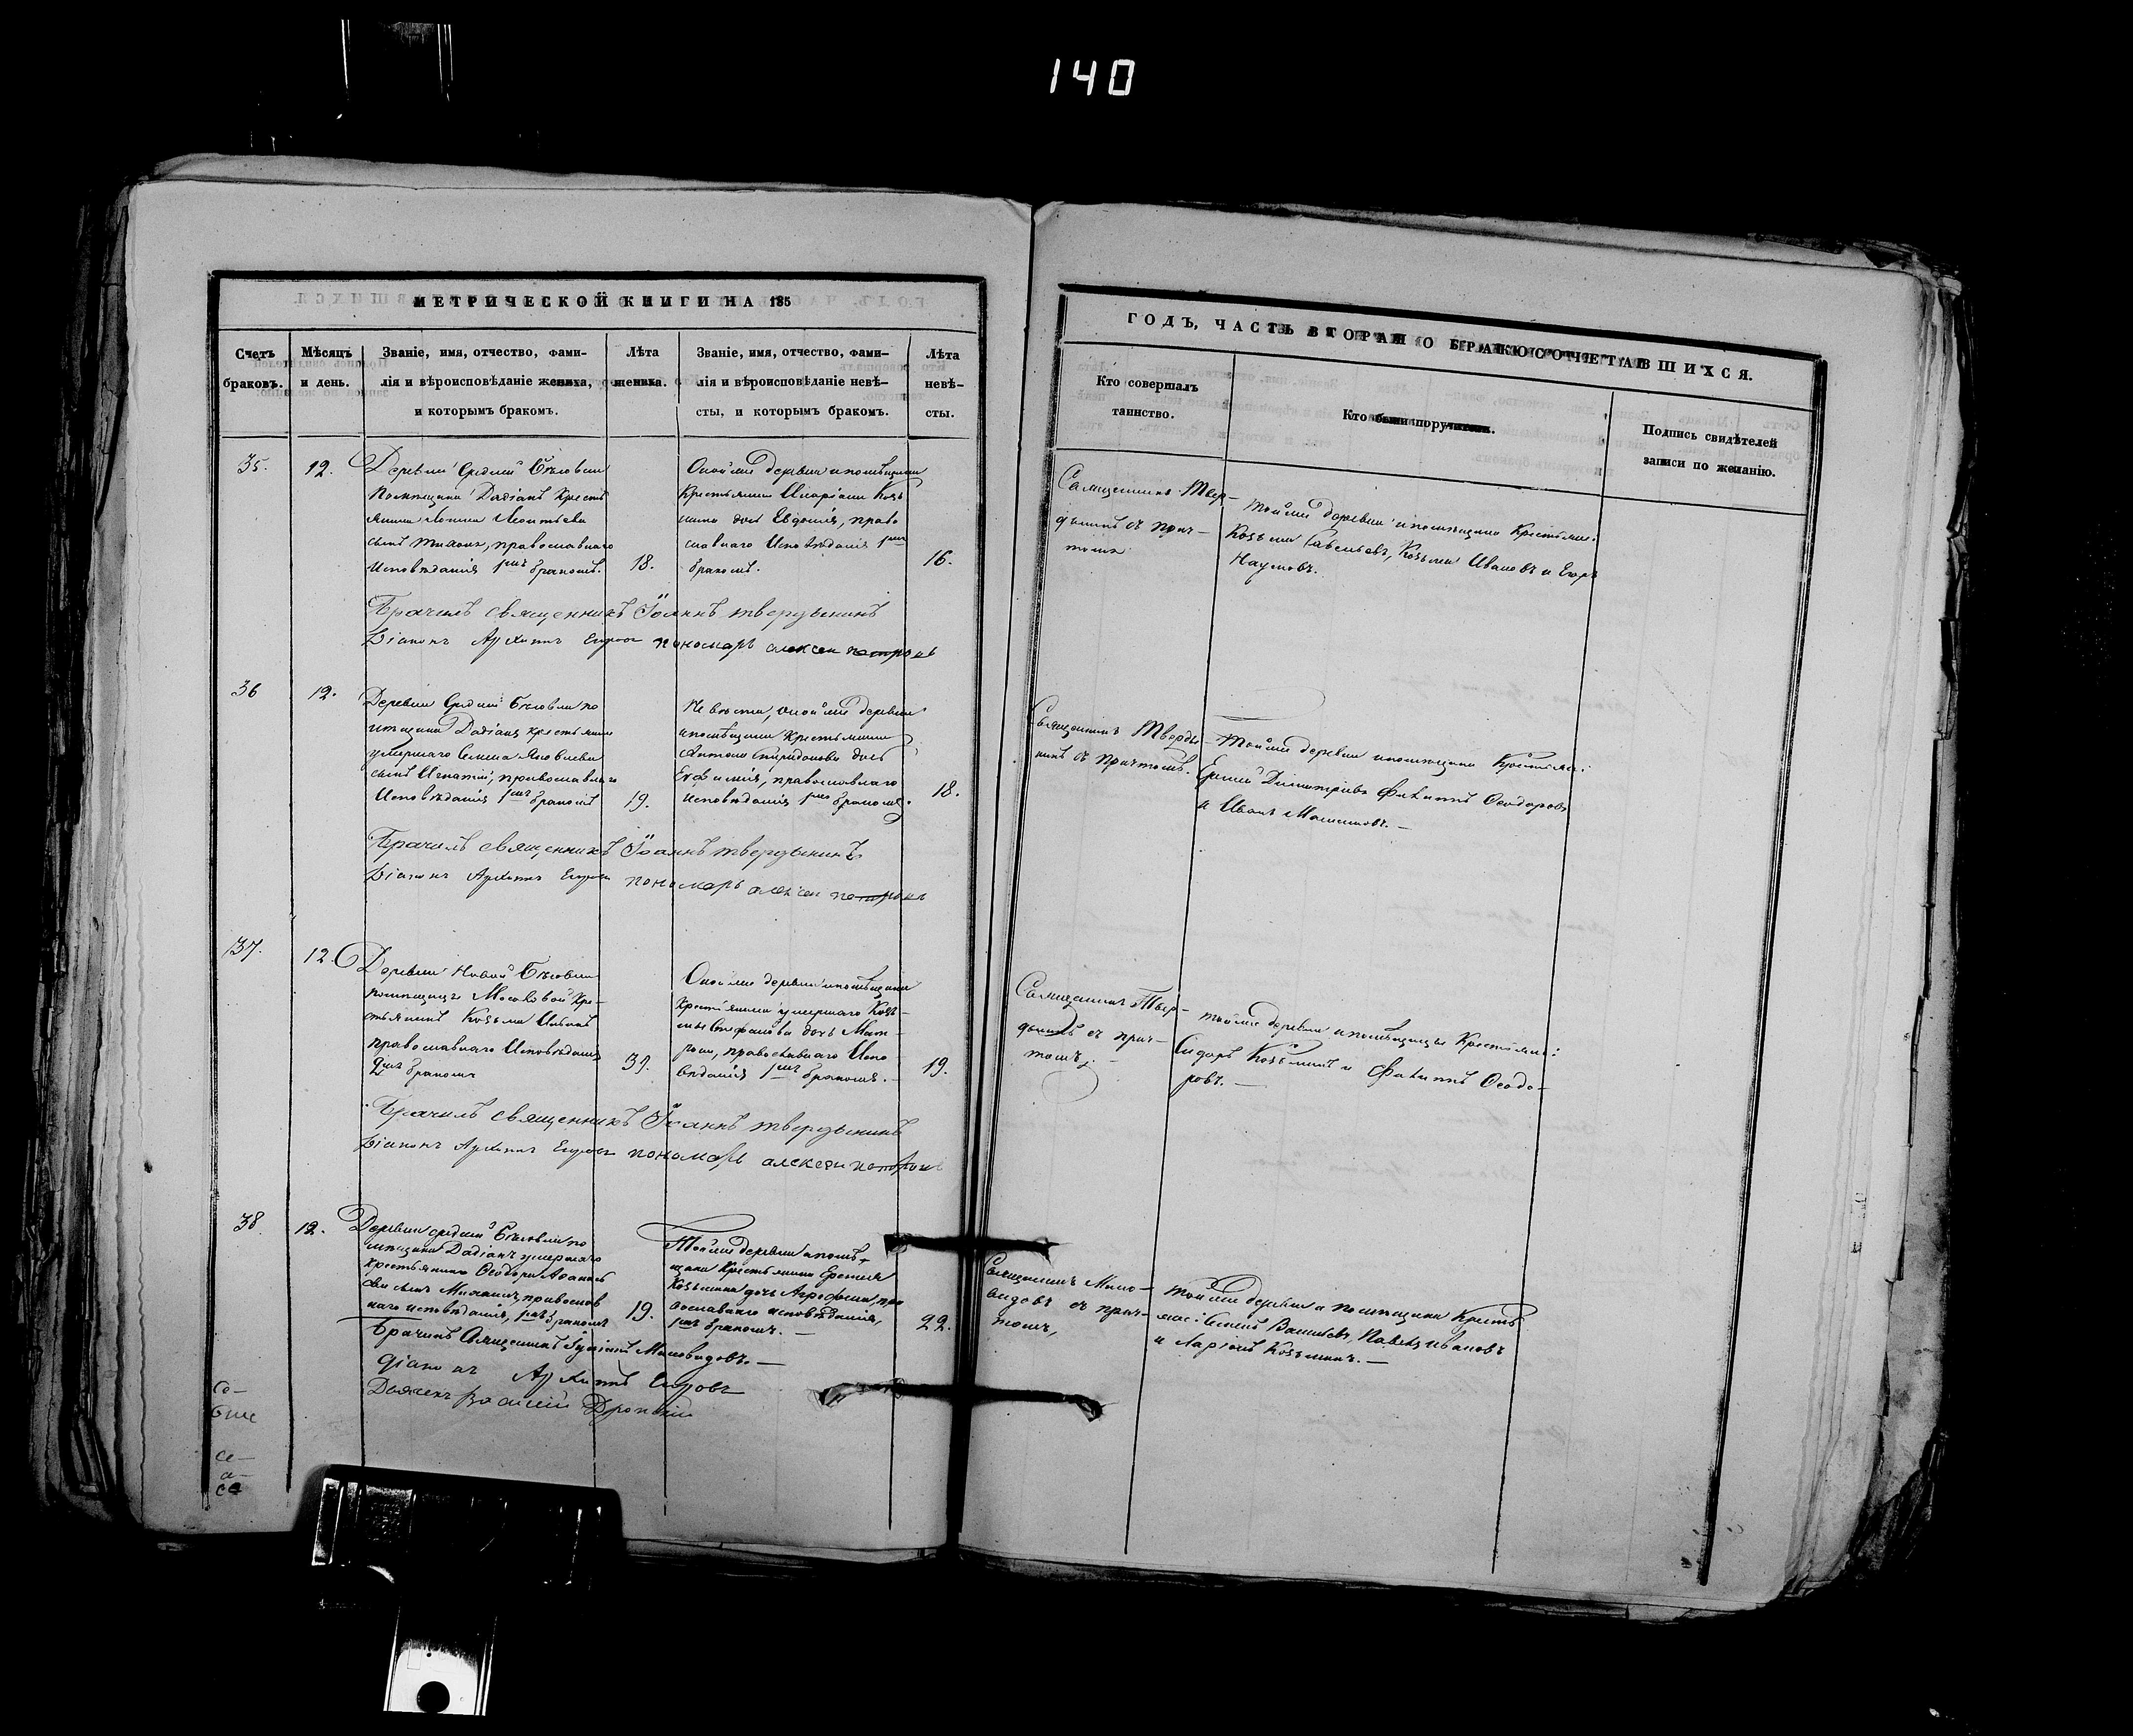 140
МЕТРИЧЕСКОЙ КНИГИ НА 185
Счетъ браковъ.
Мѣсяцъ и день.
Званіе, имя, отчество, фами-
лія и вѣроисповѣданіе жениха,
и которымъ бракомъ.
Лѣта жениха.
Званіе, имя, отчество, фами-
лія и вѣроисповѣданіе невѣ-
сты, и которымъ бракомъ.
Лѣта невѣ-
сты.
35.
12.
Деревни Средней
помѣщика Dадіанъ Крестъ
сынъ Тихонъ, православнаго
Исповѣданія 1мъ бракомъ.
18.
Оной же деревни и помѣщика
Крестьянина Иларіона Козь
мина дочь Евдокія, право
славнаго Исповѣданія 1мъ
бракомъ.
16.
Брачилъ священникъ Іоаннъ твердынинъ
Діаконъ Архипъ Егоровъ пономарь алексеи петровъ
36
12.
Деревни Средней по
мѣщика Dадіана крестьянина
умершаго Семена Яковлева
сынъ Игнатій, православнаго
Исповѣданія 1мъ бракомъ
19.
Невѣста, оной же деревни
и помѣщика Крестьянина
Антона Спиридонова дочь
Евфимія, православнаго
исповѣданія 1мъ бракомъ.
18.
Брачилъ священникъ Іоаннъ твердынинъ
Діаконъ Архипъ Егоровъ пономарь алексеи петровъ
37.
12.
Деревни Новой
помѣщицы Кре-
стьянинъ Козьма
православнаго Исповѣданія
2мъ бракомъ
39.
Оной же деревни и помѣщицы
Крестьянина умершаго Козь-
мы Стефанова дочь Мат-
рона, православнаго Испо-
вѣданія 1мъ бракомъ.
19.
Брачилъ священникъ Іоаннъ твердынинъ
Діаконъ Архипъ Егоровъ пономарь алексеи петровъ
38
12.
Деревни средней по
мѣщика Dадіанъ умершаго
крестьянина Ѳеодора Аѳанась
ева сынъ православ
наго исповѣданія, 1мъ бракомъ
19.
Той же деревни и помѣ-
щика Крестьянина
Козьмина дочь Агрофена, пра
вославнаго исповѣданія,
1мъ бракомъ.
22.
Брачилъ Священникъ Миловидовъ.
діаконъ Архипъ Егоровъ
Василій
ГОДЪ, ЧАСТЬ ВТОРАЯ О БРАКОСОЧЕТАВШИХСЯ.
Кто совершалъ
таинство.
Кто были поручители.
Подпись свидѣтелей
записи по желанію.
Священникъ Твер-
дынинъ съ прич-
томъ
той же деревни и помѣщика Крестьяне:
Козьма Савельевъ, Козьма Ивановъ и Егоръ
Наумовъ.
Священникъ Тверды-
нинъ съ причтомъ.
Той же деревни и помѣщика Крестьяне:
Димитріевъ Филиппъ Ѳеодоровъ
и Иванъ
Священникъ Твер-
дынинъ съ прич-
томъ.
той же деревни и помѣщицы Крестьяне:
Сидоръ Козьминъ и Филиппъ Ѳеодо-
ровъ.
Священникъ Мило-
видовъ съ прич-
томъ,
той же деревни и помѣщика Кресть
яне: Семенъ Васильевъ, Павелъ Ивановъ
и Ларіонъ Козьминъ.